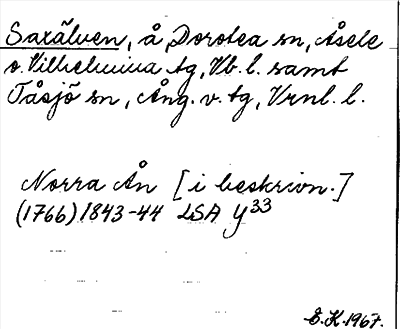 Saxälven, å, Dorotea sn, Åsele
o. Vilhelmina tg, Vb. l. samt
Tåsjö sn, Ång. v. tg, Vrnl. l.
Norra Ån [i beskrivn.]
(1766) 1843-44 LSA Y33
E.K. 1967.